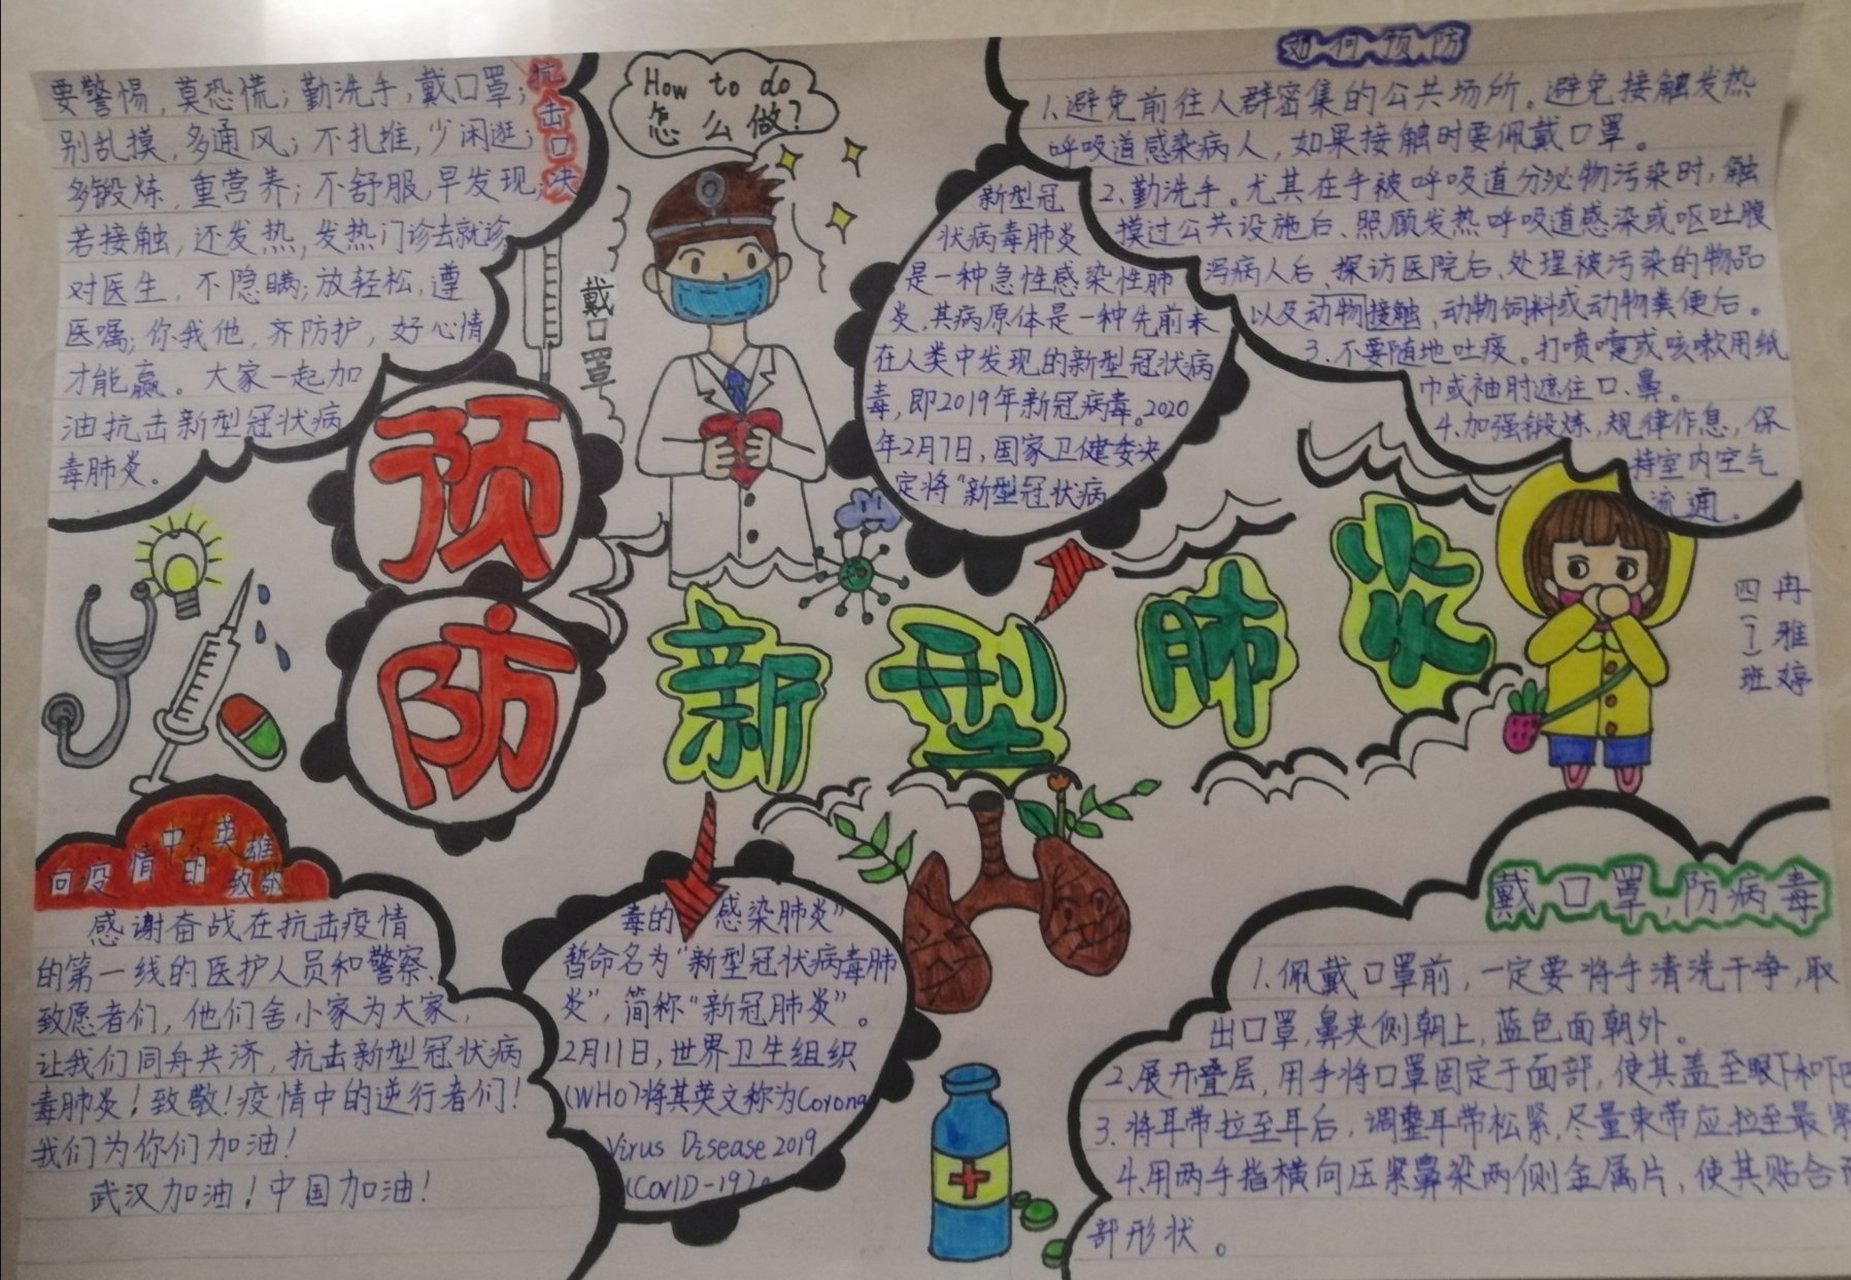 抗击口决
要警惕，莫恐慌；勤洗手，戴口罩；
别乱摸，多通风；不扎堆，少闲逛；
多锻炼，重营养；不舒服，早发现；
若接触，还发热，发热门诊去就诊
对医生，不隐瞒；放轻松，遵
医嘱；你我他，齐防护，好心情
才能赢。大家一起加
油抗击新型冠状病
毒肺炎。
How to do
怎么做?
戴口罩
新型冠
状病毒肺炎
是一种急性感染性肺
炎，其病原体是一种先前未
在人类中发现的新型冠状病
毒，即2019年新冠病毒。2020
年2月7日，国家卫健委决
定将“新型冠状病
如何预防
1.避免前往人群密集的公共场所。避免接触发热
呼吸道感染病人，如果接触时要佩戴口罩。
2.勤洗手。尤其在手被呼吸道分泌物污染时，触
摸过公共设施后、照顾发热呼吸道感染或呕吐腹
泻病人后、探访医院后、处理被污染的物品
以及动物接触、动物饲料或动物粪便后。
3.不要随地吐痰。打喷嚏或咳嗽用纸
巾或袖肘遮住口、鼻。
4.加强锻炼，规律作息，保
持室内空气
流通。
预防
新型肺炎
四(1)班
冉雅婷
向疫情中的英雄致敬
感谢奋战在抗击疫情
的第一线的医护人员和警察、
致愿者们，他们舍小家为大家，
让我们同舟共济，抗击新型冠状病
毒肺炎！致敬！疫情中的逆行者们！
我们为你们加油！
武汉加油！中国加油！
毒的 感染肺炎”
暂命名为“新型冠状病毒肺
炎”，简称“新冠肺炎”。
2月11日，世界卫生组织
(WHO)将其英文称为Corona
Virus Disease 2019
(COVID-19)。
戴口罩，防病毒
1.佩戴口罩前，一定要将手清洗干净，取
出口罩，鼻夹侧朝上，蓝色面朝外。
2.展开叠层，用手将口罩固定于面部，使其盖至眼下和下巴
3.将耳带拉至耳后，调整耳带松紧，尽量束带应拉至最紧
4.用两手指横向压紧鼻梁两侧金属片，使其贴合面
部形状。